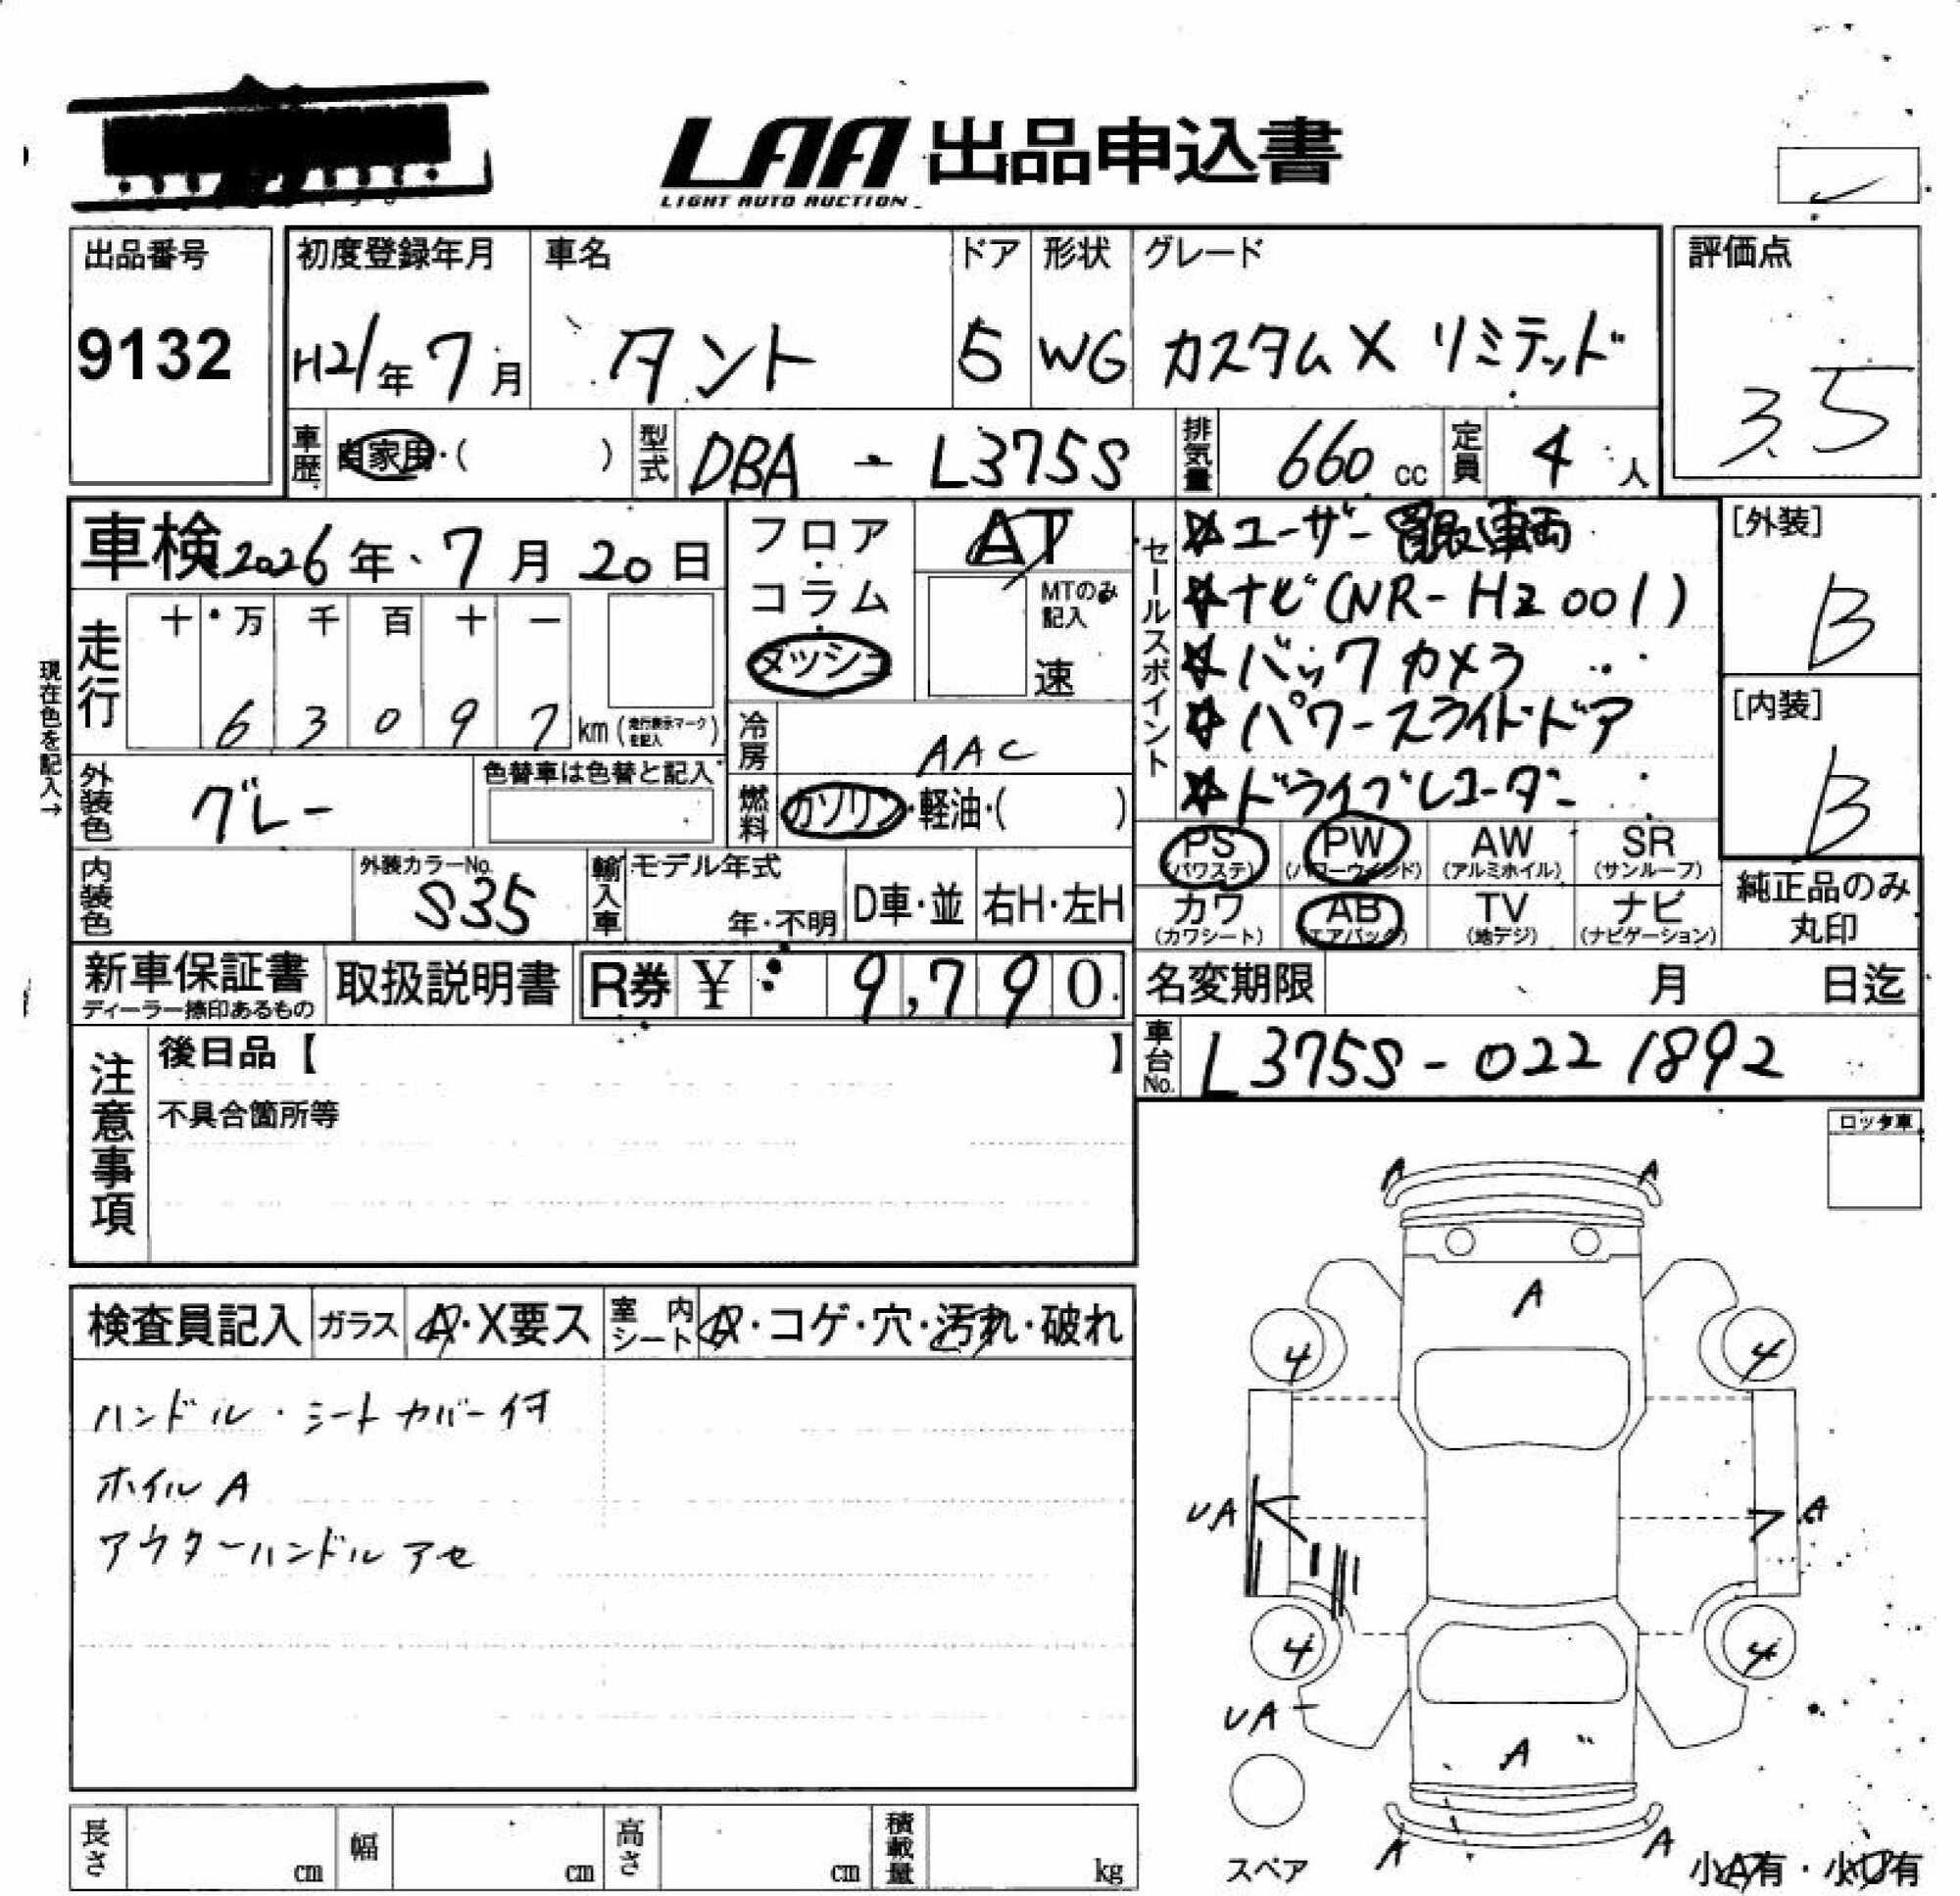 LAA 出品申込書
LIGHT AUTO AUCTION
出品番号
9132
初度登録年月
H21年 7月
車名
タント
ドア
5
形状
WG
グレード
カスタム X リミテッド
評価点
3.5
車歴
自家用・( )
型式
DBA - L375S
排気量
660 cc
定員
4 人
車検 2026年 7月 20日
フロア
コラム
メッシュ
AT
MTのみ記入
速
現在色を記入→
走行
十 万 千 百 十 一
6 3 0 9 7
km (走行表示マークを記入)
冷房
AAC
外装色
グレー
色替車は色替と記入
燃料
ガソリン・軽油・( )
内装色
外装カラーNo.
S35
輸入車
モデル年式
年・不明
D車・並
右H・左H
新車保証書
ディーラー捺印あるもの
取扱説明書
R券 ¥ 9,790.
セールスポイント
☆ユーザー買取車両
☆ナビ(NR-HZ001)
☆バックカメラ
☆パワースライドドア
☆ドライブレコーダー
[外装]
B
[内装]
B
PS
(パワステ)
PW
(パワーウインド)
AW
(アルミホイル)
SR
(サンルーフ)
カワ
(カワシート)
AB
(エアバック)
TV
(地デジ)
ナビ
(ナビゲーション)
純正品のみ
丸印
名変期限
月 日迄
車台No.
L375S-0221892
注意事項
後日品【 】
不具合箇所等
ロッタ車
検査員記入
ガラス
A・X要ス
室内シート
A・コゲ・穴・汚れ・破れ
ハンドル・シートカバー付
ホイルA
アウターハンドルアセ
A A
A
4 4
UA A
4 4
UA
A
A A
スペア
小A有・小U有
長さ cm
幅 cm
高さ cm
積載量 kg